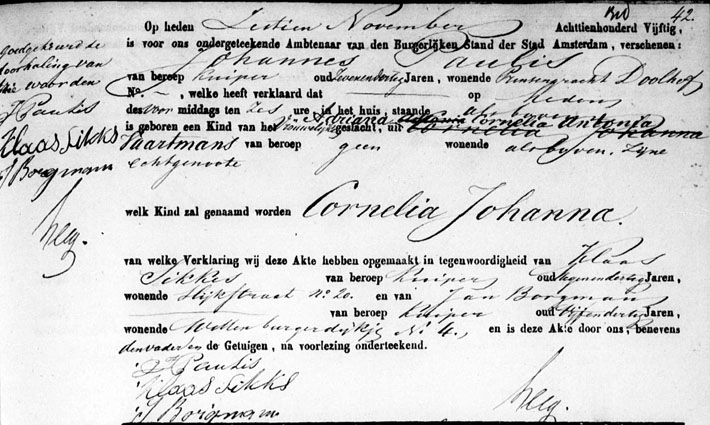 3v0 42.
Op heden Zestien November Achttienhonderd Vijftig,
is voor ons ondergeteekende Ambtenaar van den Burgerlijken Stand der Stad Amsterdam, verschenen:
Johannes Paulis
van beroep Kuiper oud Zevenendertig Jaren, wonende Prinsengracht Doolhof
No. –, welke heeft verklaard dat op heden
des voor middags ten zes ure in het huis, staande alsboven
is geboren een Kind van het Vrouwelijke geslacht, uit Adriana Cornelia Antonia Cornelia Johanna
Paartmans van beroep geen wonende alsboven, Zijne
echtgenoote
welk Kind zal genaamd worden Cornelia Johanna.
van welke Verklaring wij deze Akte hebben opgemaakt in tegenwoordigheid van Klaas
Sikkes van beroep Kuiper oud Jaren,
wonende Slijkstraat No. 20. en van Jan Borgman
van beroep Kuiper oud Vijfendertig Jaren,
wonende Wittenburgerdijkje No. 4, en is deze Akte door ons, benevens
den vader en de Getuigen, na voorlezing onderteekend.
J Paulis
Klaas Sikks
J Borgman
Goedgekeurd de
doorhaling van
woorden
J Paulis
Klaas Sikks
J Borgman